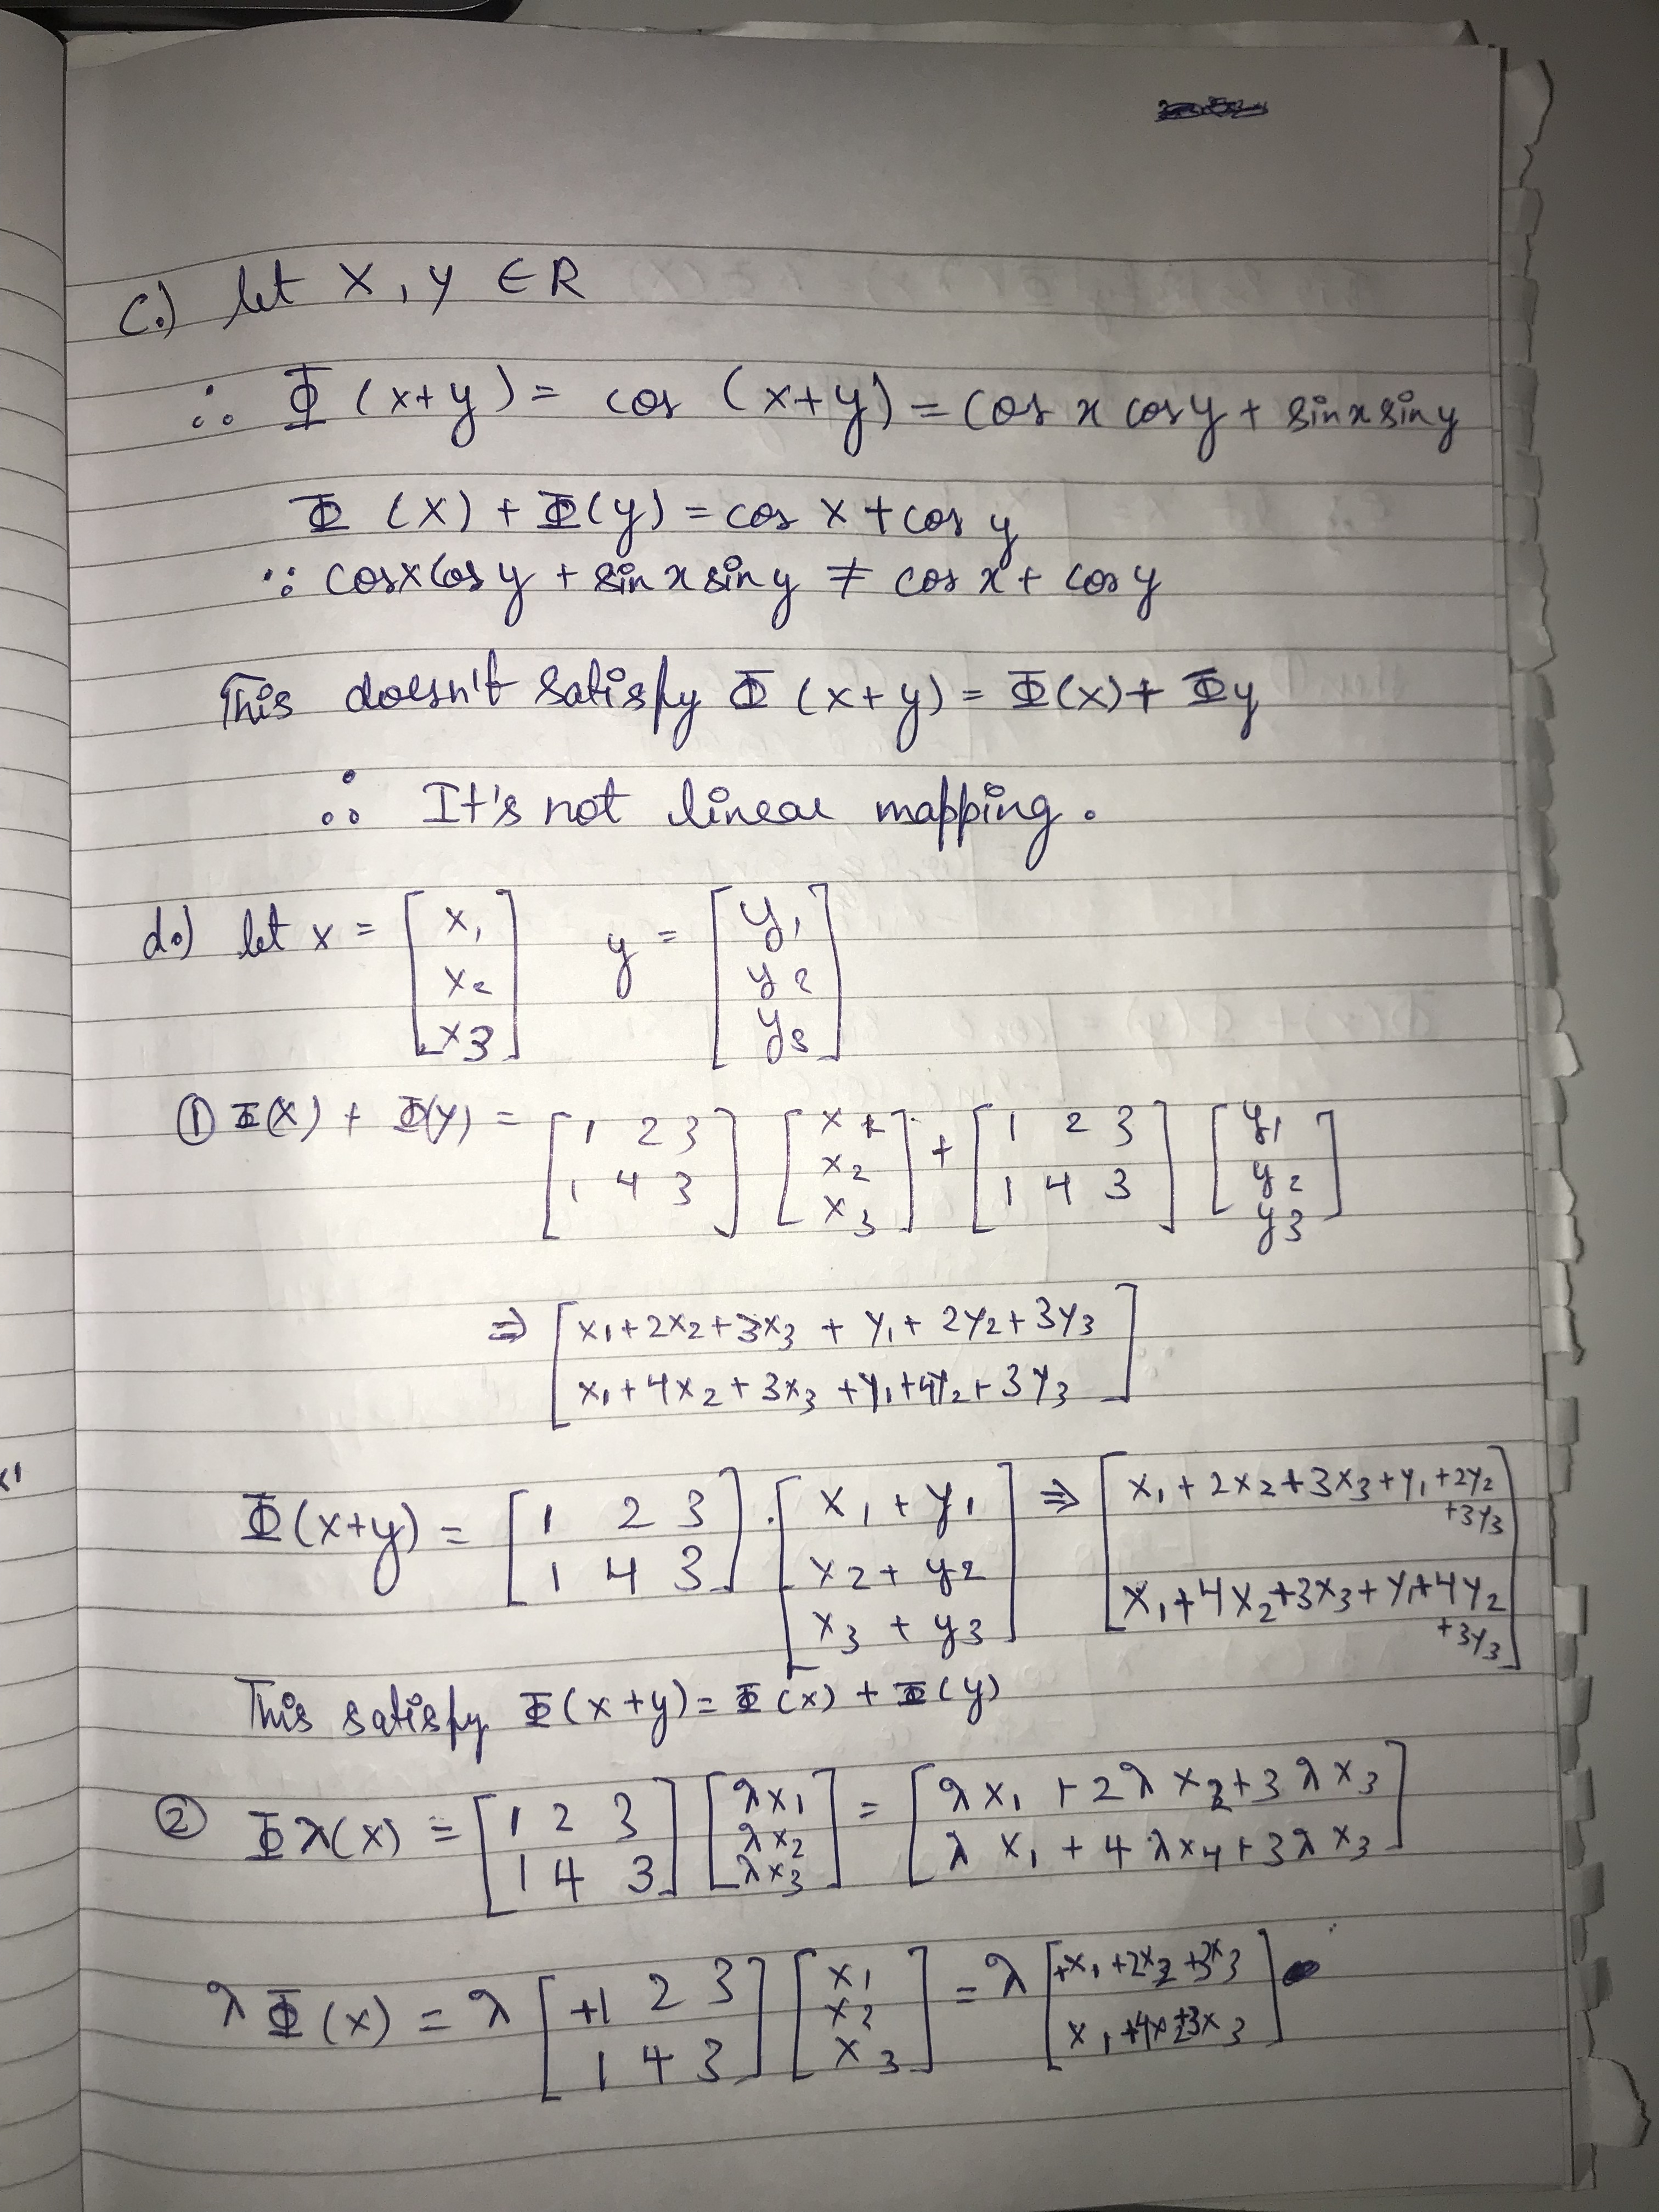 C.) let x, y ∈ R
∴ Φ (x+y) = cos (x+y) = cos x cos y + sin x sin y
Φ (x) + Φ(y) = cos x + cos y
∵ cos x cos y + sin x sin y ≠ cos x + cos y
This doesn't satisfy Φ (x+y) = Φ(x) + Φy
∴ It's not linear mapping.
d.) let x = [x1 x2 x3] y = [y1 y2 y3]
① Φ(x) + Φ(y) = [1 2 3 1 4 3] [x1 x2 x3] + [1 2 3 1 4 3] [y1 y2 y3]
⇒ [x1 + 2x2 + 3x3 + y1 + 2y2 + 3y3
x1 + 4x2 + 3x3 + y1 + 4y2 + 3y3]
Φ(x+y) = [1 2 3 1 4 3] . [x1 + y1 x2 + y2 x3 + y3] ⇒ [x1 + 2x2 + 3x3 + y1 + 2y2 + 3y3 x1 + 4x2 + 3x3 + y1 + 4y2 + 3y3]
This satisfy Φ(x+y) = Φ(x) + Φ(y)
② Φλ(x) = [1 2 3 1 4 3] [λx1 λx2 λx3] = [λx1 + 2λx2 + 3λx3 λx1 + 4λx4 + 3λx3]
λ Φ(x) = λ [+1 2 3 1 4 3] [x1 x2 x3] = λ [+x1 + 2x2 + 3x3 x1 + 4x2 + 3x3]